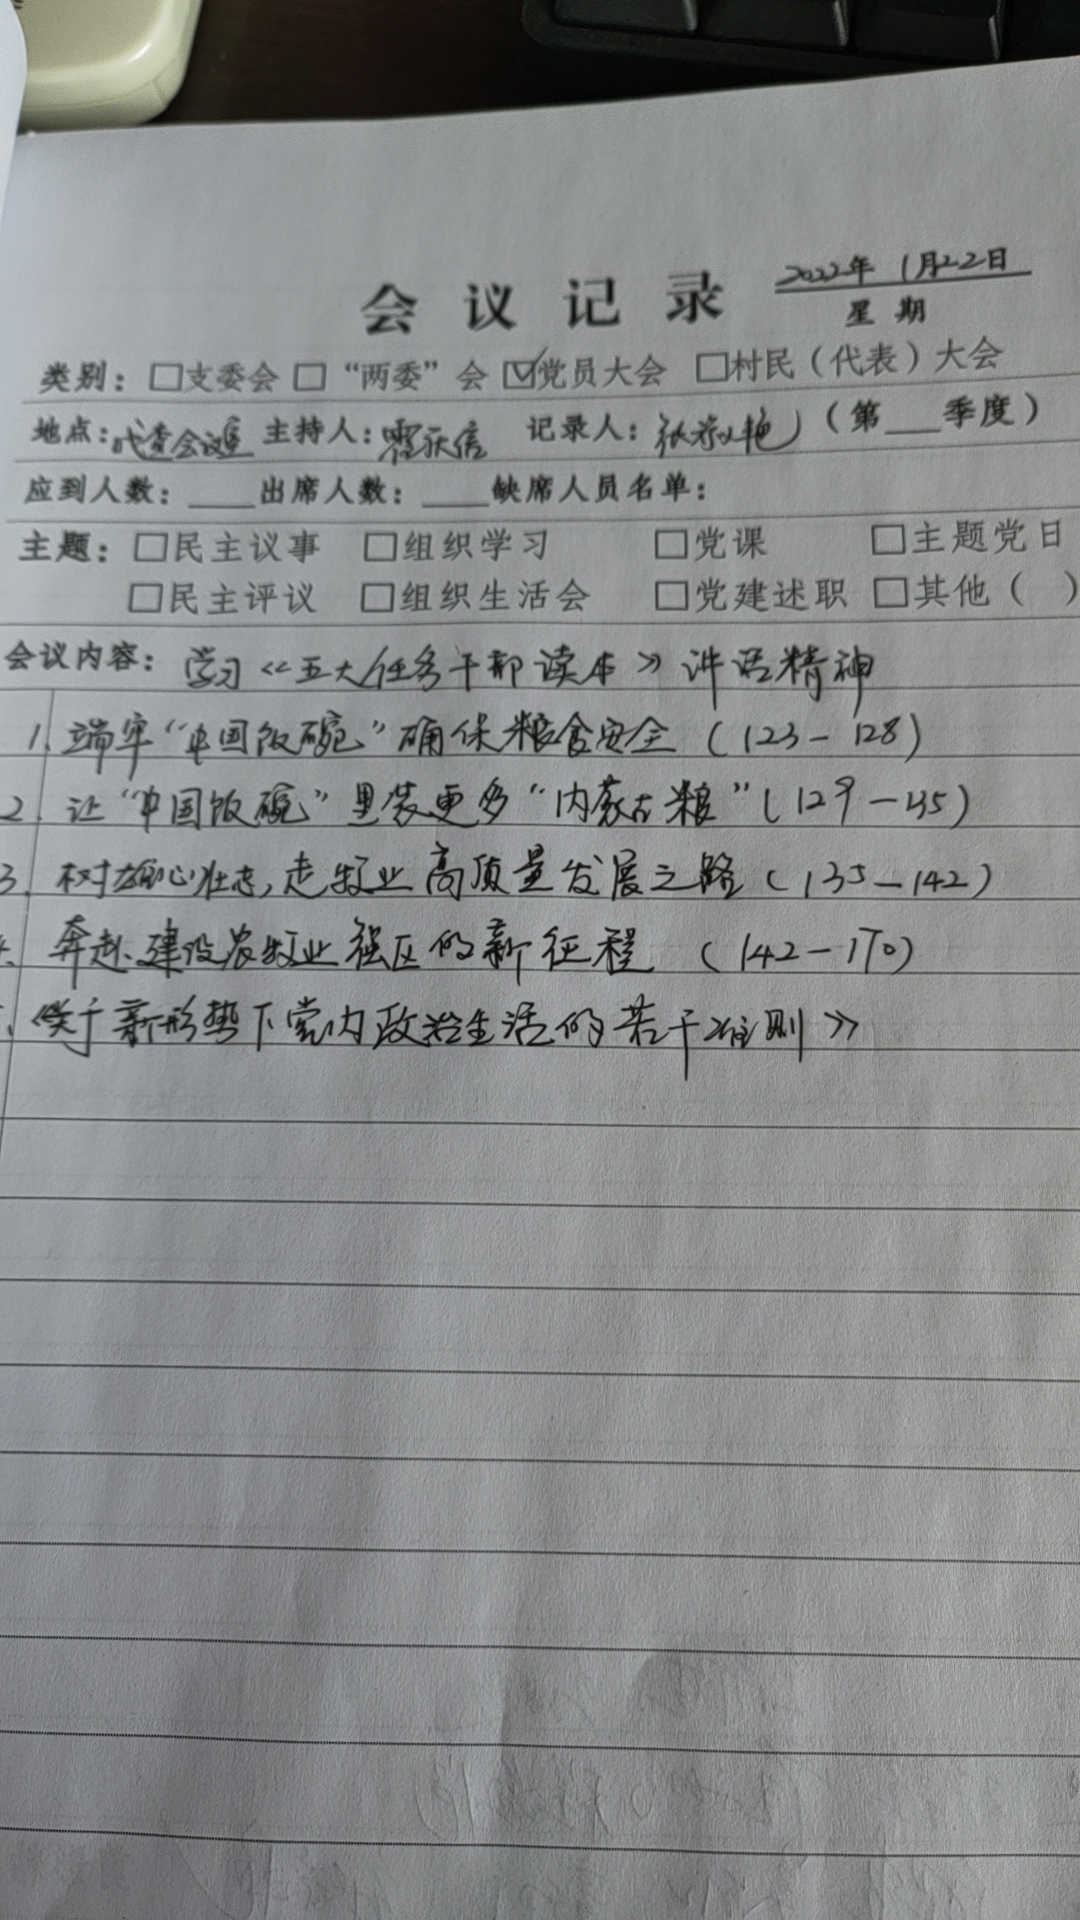 2022年 1月22日
会议记录
星期
类别：□支委会 □“两委”会 ☑党员大会 □村民（代表）大会
地点： 会议室 主持人： 记录人：张 艳 （第___季度）
应到人数：____出席人数：____缺席人员名单：
主题：□民主议事 □组织学习 □党课 □主题党日
□民主评议 □组织生活会 □党建述职 □其他（ ）
会议内容：学习《五大任务干部读本》讲话精神
1. 端牢“中国饭碗”确保粮食安全（123－128）
2. 让“中国饭碗”里装更多“内蒙古粮”（129－135）
3. 树雄心壮志，走牧业高质量发展之路（135－142）
奔赴建设农牧业强区的新征程（142－170）
《关于新形势下党内政治生活的若干准则》